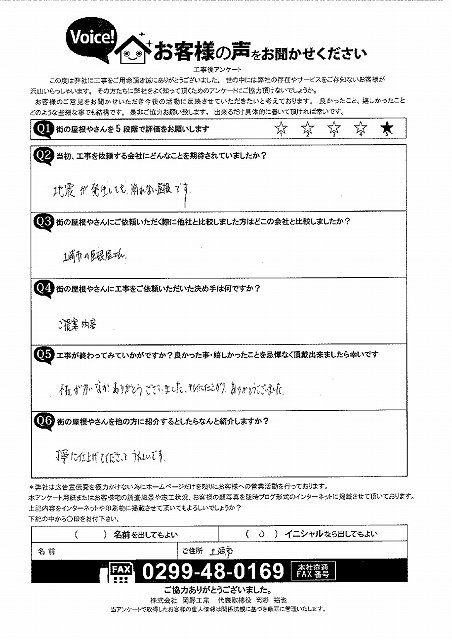 Voice!
お客様の声をお聞かせください
工事後アンケート
この度は弊社に工事をご用命頂き誠にありがとうございました。世の中には弊社の存在やサービスをご存知ないお客様が
沢山いらっしゃいます。その方たちに弊社をよく知って頂くためのアンケートにご協力頂けないでしょうか。
お客様のご意見をお聞かせいただき今後の活動に反映させていただきたいと考えております。良かったこと、嬉しかったこと
どのような些細な事でも結構です。是非ご協力お願い致します。出来るだけ具体的に書いて頂ければ幸いです。
Q1 街の屋根やさんを5段階で評価をお願いします ☆ ☆ ☆ ☆ ★
Q2 当初、工事を依頼する会社にどんなことを期待されていましたか?
地震が発生しても、崩れない屋根です
Q3 街の屋根やさんにご依頼いただく際に他社と比較しました方はどこの会社と比較しましたか?
土浦市の屋根屋さん
Q4 街の屋根やさんに工事をご依頼いただいた決め手は何ですか?
ご提案内容
Q5 工事が終わってみていかがですか?良かった事・嬉しかったことを忌憚なく頂戴出来ましたら幸いです
ありがとうございました。ありがとうございました
Q6 街の屋根やさんを他の方に紹介するとしたらなんと紹介しますか?
丁寧に仕上げてくださって うれしいです
*弊社は広告宣伝費を極力かけない為にホームページだけを頼りにお客様への営業活動を行っております。
本アンケート用紙またはお客様宅の調査風景や施工状況、お客様の顔写真を随時ブログ形式のインターネットに掲載させて頂いております。
上記内容をインターネットや印刷物に掲載させて頂いてもよろしいでしょうか?
下記の中から○印をお付下さい。
( )名前を出してもよい (○)イニシャルなら出してもよい
名前 ご住所 土浦市
FAX 0299-48-0169 本社直通 FAX番号
ご協力ありがとうございました。
株式会社 岡野工業 代表取締役
当アンケートで取得したお客様の個人情報は関係法規に基づき厳正に管理いたします。